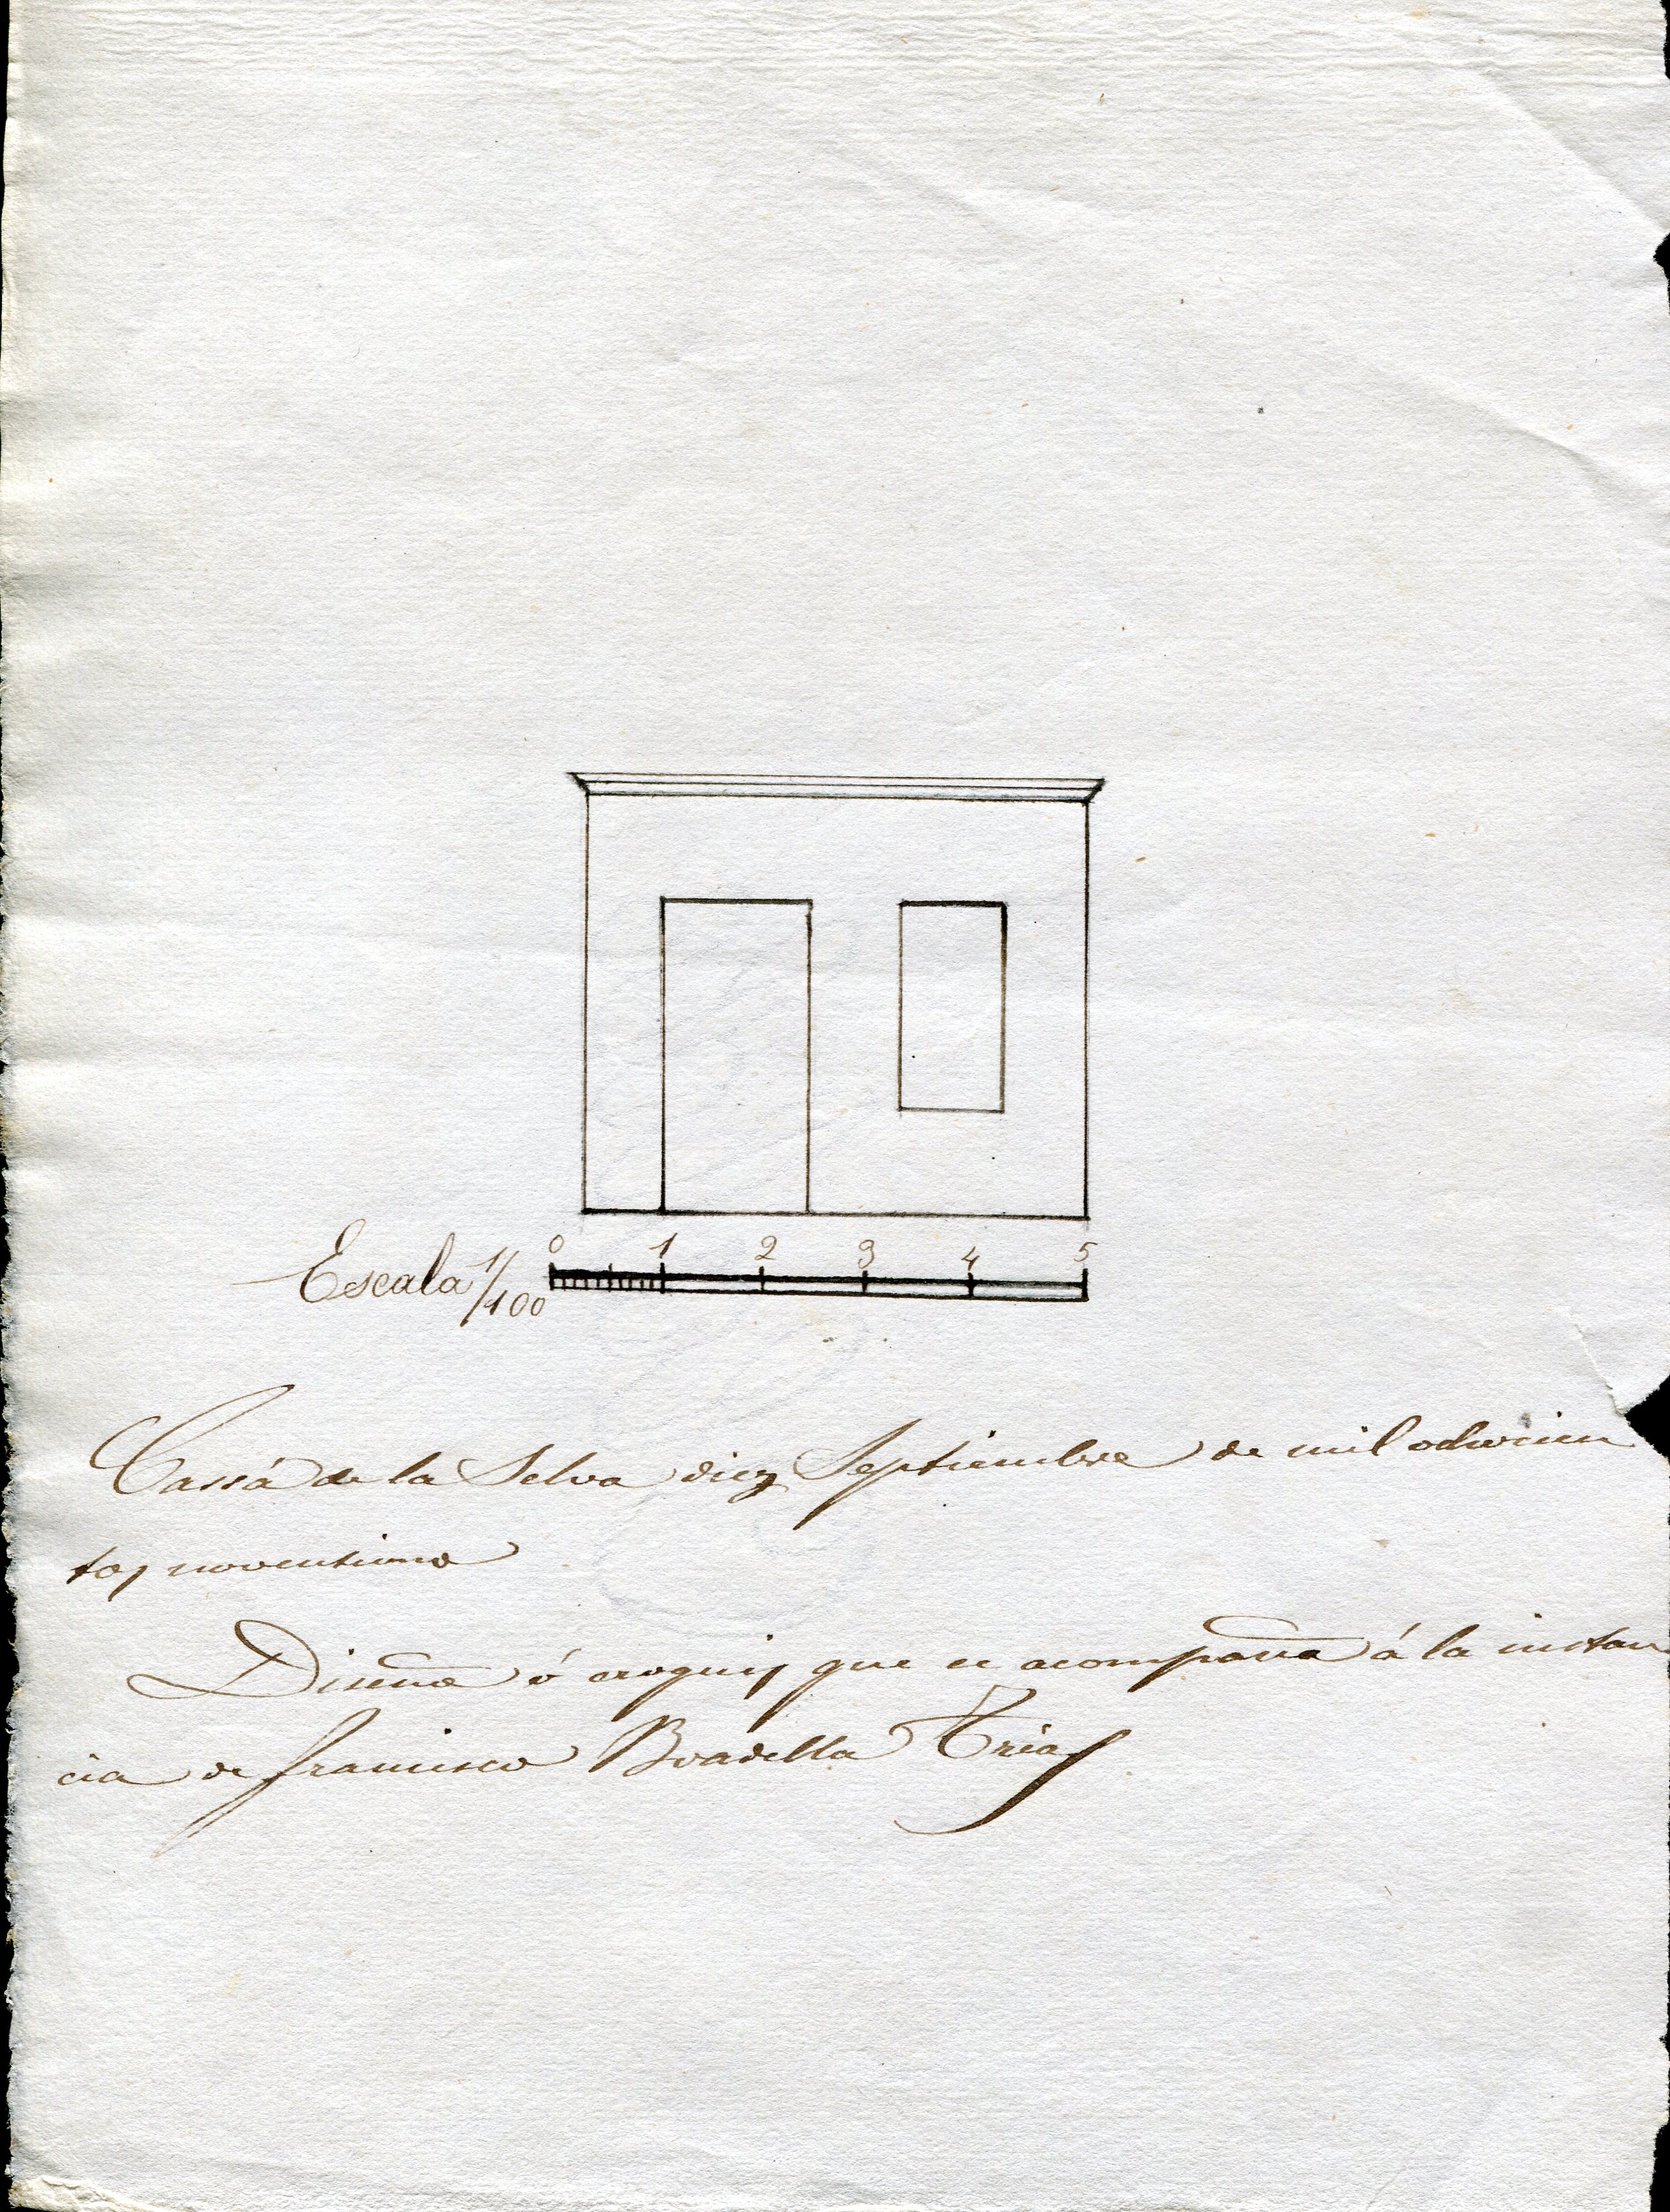 0 1 2 3 4 5
Escala 1/100
Cassá de la Selva diez Septiembre de mil ochocien
tos noventiuno
Diseño ó croquis que se acompaña á la instan
cia de Francisco Boadella Trias